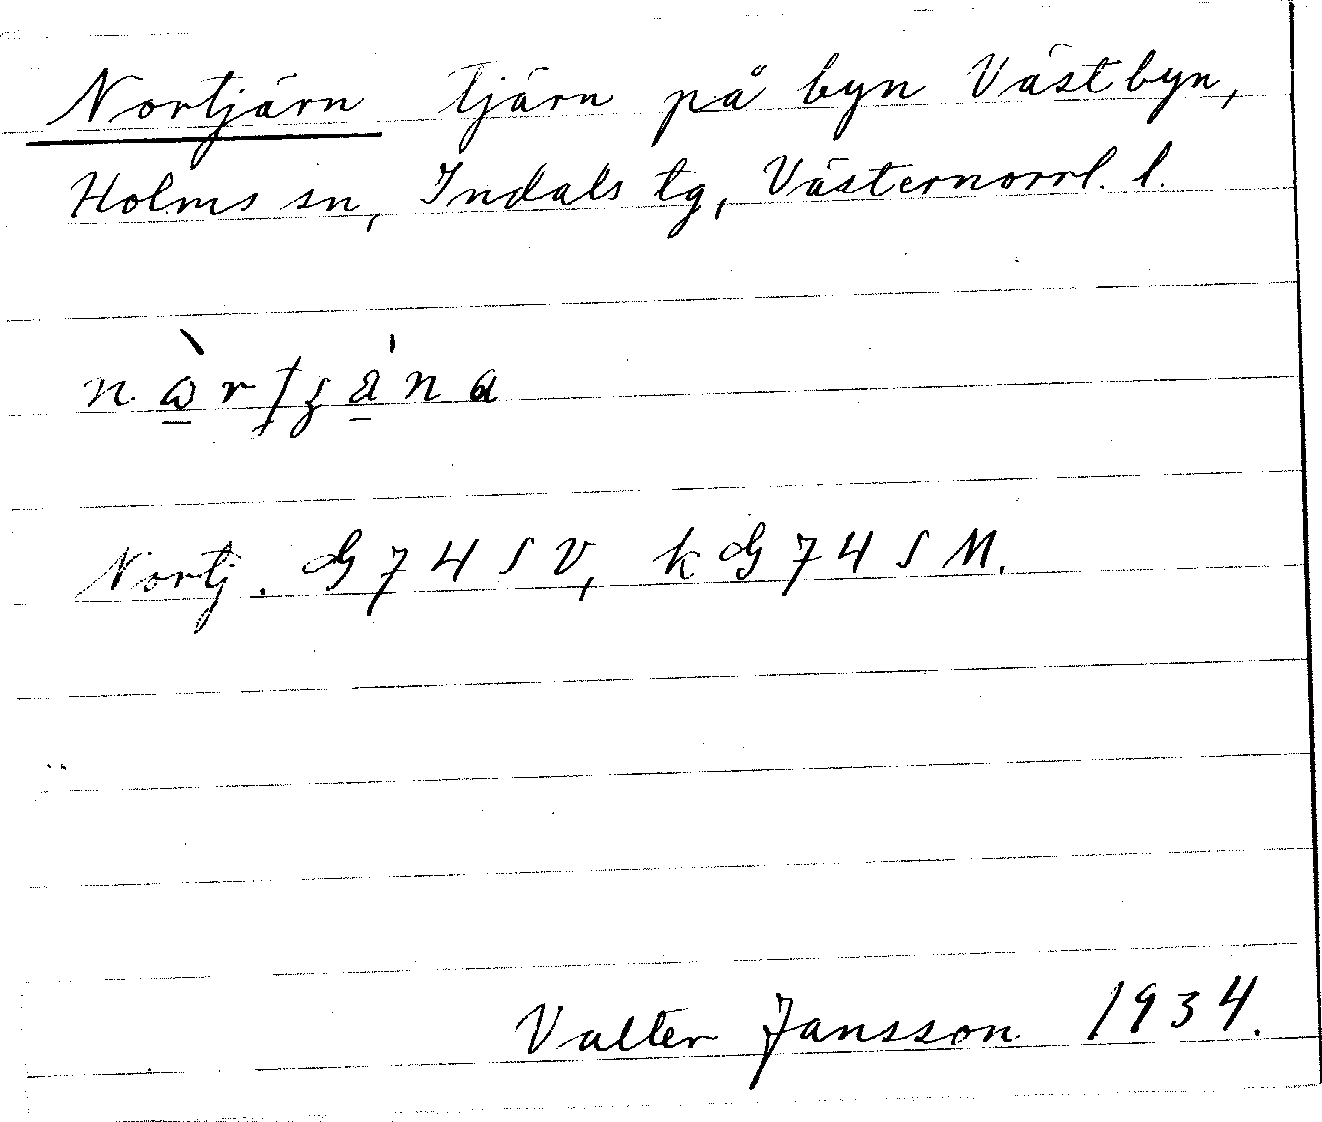 Nortjärn Tjärn på byn Västbyn,
Holms sn, Indals tg, Västernorrl. l.
Nortj. G 74 SV, k G 74 S M.
Valter Jansson 1934.